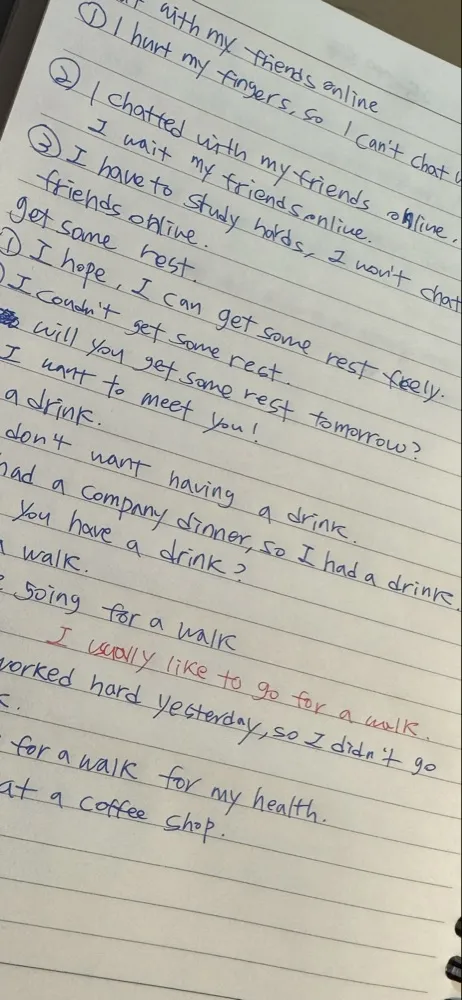 with my friends online
① I hurt my fingers, so I can't chat
② I chatted with my friends online.
I wait my friends online.
③ I have to study hards, I won't chat
friends online.
get some rest.
① I hope, I can get some rest feely.
I coudn't get some rest.
will you get some rest tomorrow?
I want to meet you!
a drink.
don't want having a drink.
had a company dinner, so I had a drink.
you have a drink?
walk.
going for a walk
I usually like to go for a walk.
worked hard yesterday, so I didn't go
for a walk for my health.
at a coffee shop.